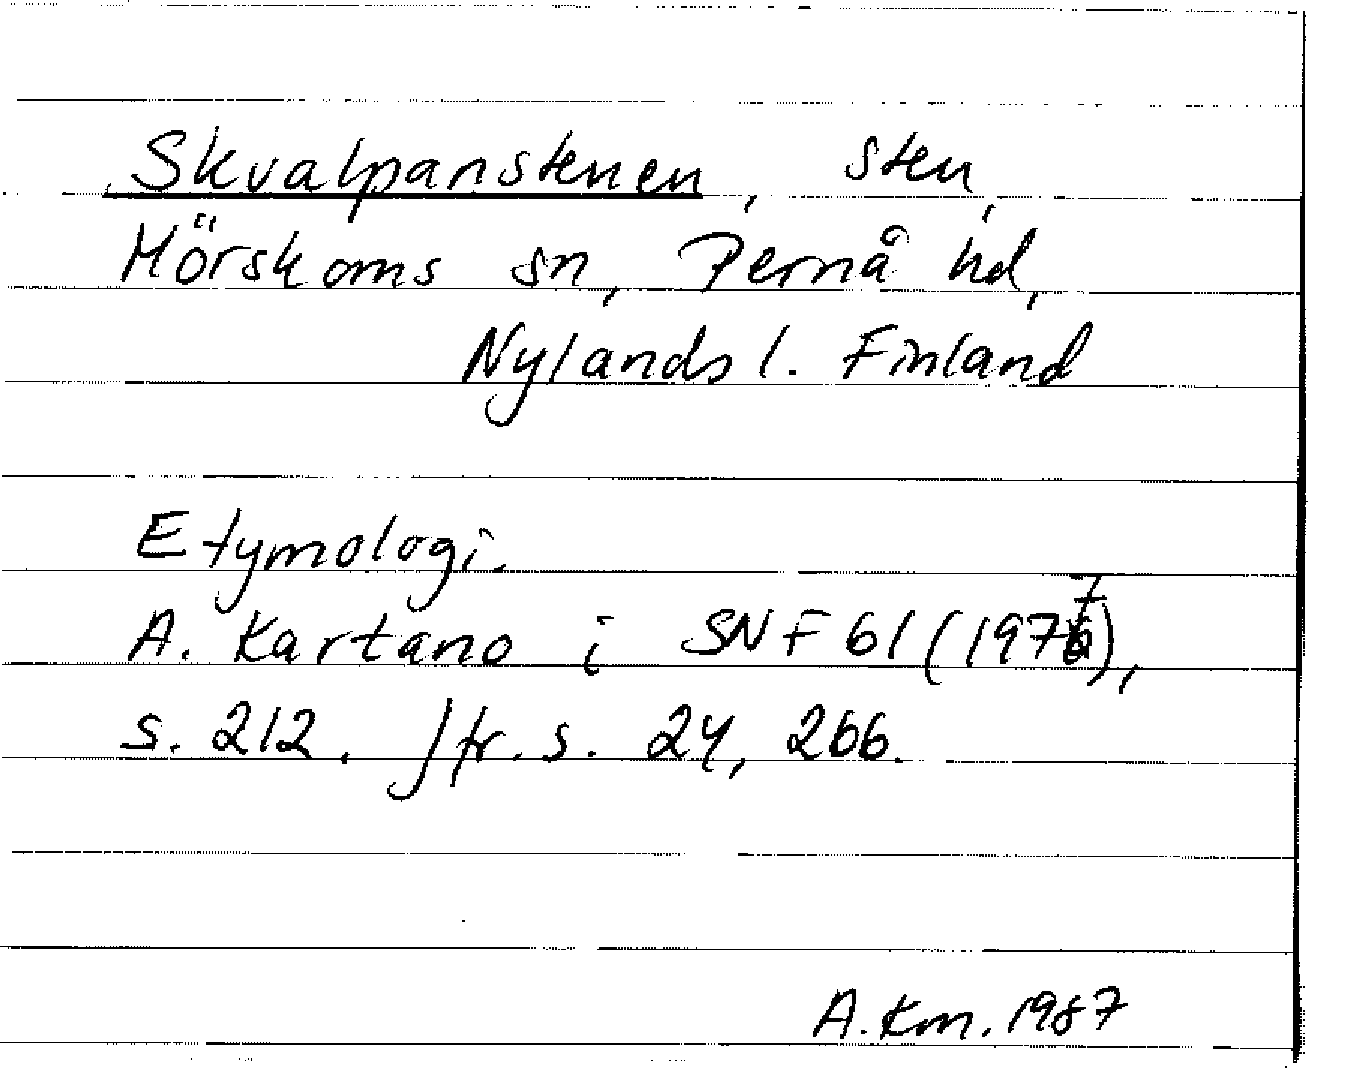 Skvalpanstenen, sten,
Mörskoms sn, Pernå hd,
Nylands l. Finland
Etymologi.
A. Kartano i SNF 61 (1977),
s. 212. Jfr. s. 24, 266.
A. Km. 1987